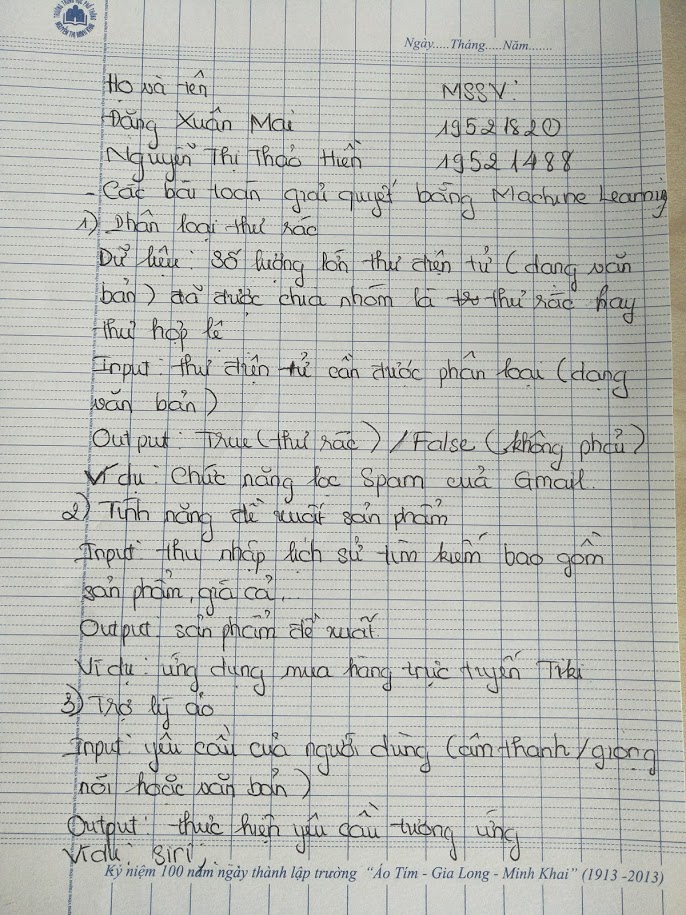 TRƯỜNG TRUNG HỌC PHỔ THÔNG
NGUYỄN THỊ MINH KHAI
Ngày.....Tháng.....Năm.......
Họ và tên MSSV:
Đặng Xuân Mai 19521820
Nguyễn Thị Thảo Hiền 19521488
- Các bài toán giải quyết bằng Machine Learning
1) Phân loại thư rác
Dữ liệu: Số lượng lớn thư điện tử (dạng văn
bản) đã được chia nhóm là thư rác hay
thư hợp lệ
Input: thư điện tử cần được phân loại (dạng
văn bản)
Output: True (thư rác) / False (không phải)
Ví dụ: Chức năng lọc Spam của Gmail.
2) Tính năng đề xuất sản phẩm
Input: thu nhập lịch sử tìm kiếm bao gồm
sản phẩm, giá cả,...
Output: sản phẩm đề xuất
Ví dụ: ứng dụng mua hàng trực tuyến Tiki
3) Trợ lý ảo
Input: yêu cầu của người dùng (âm thanh / giọng
nói hoặc văn bản)
Output: thực hiện yêu cầu tương ứng
Ví dụ: Siri,..
Kỷ niệm 100 năm ngày thành lập trường "Áo Tím - Gia Long - Minh Khai" (1913 -2013)